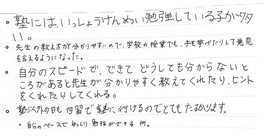 ・塾には、いっしょうけんめい勉強している子が多
い。
・先生の教え方が分かりやすいので、学校の授業でも、手を挙げたりして発見
を言えるようになった。
・自分のスピードで、できて どうしても分からないと
ころがあると先生が分かりやすく教えてくれたり、ヒント
をくれたりしてくれる。
・塾がない日も、自習で塾に行けるのでとても助かります。
・自分のペースでゆっくり勉強ができる所。